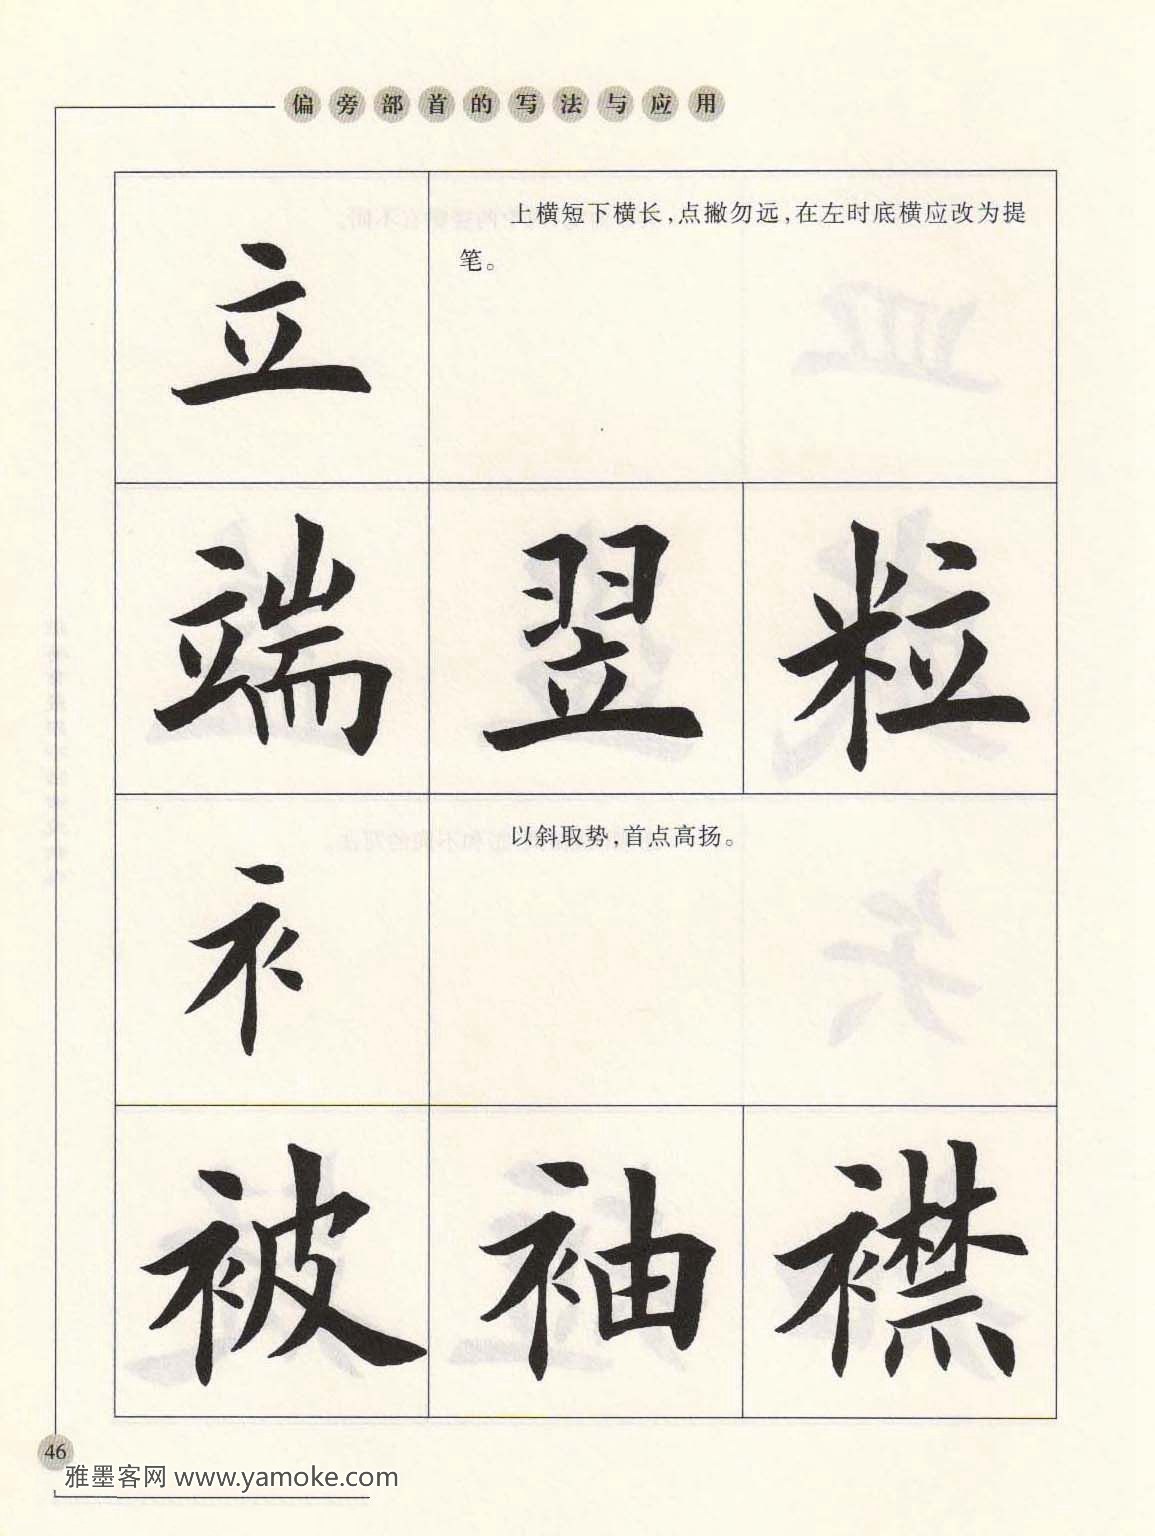 偏旁部首的写法与应用
立
上横短下横长，点撇勿远，在左时底横应改为提
笔。
端 翌 粒
衤
以斜取势，首点高扬。
被 袖 襟
46
雅墨客网 www.yamoke.com